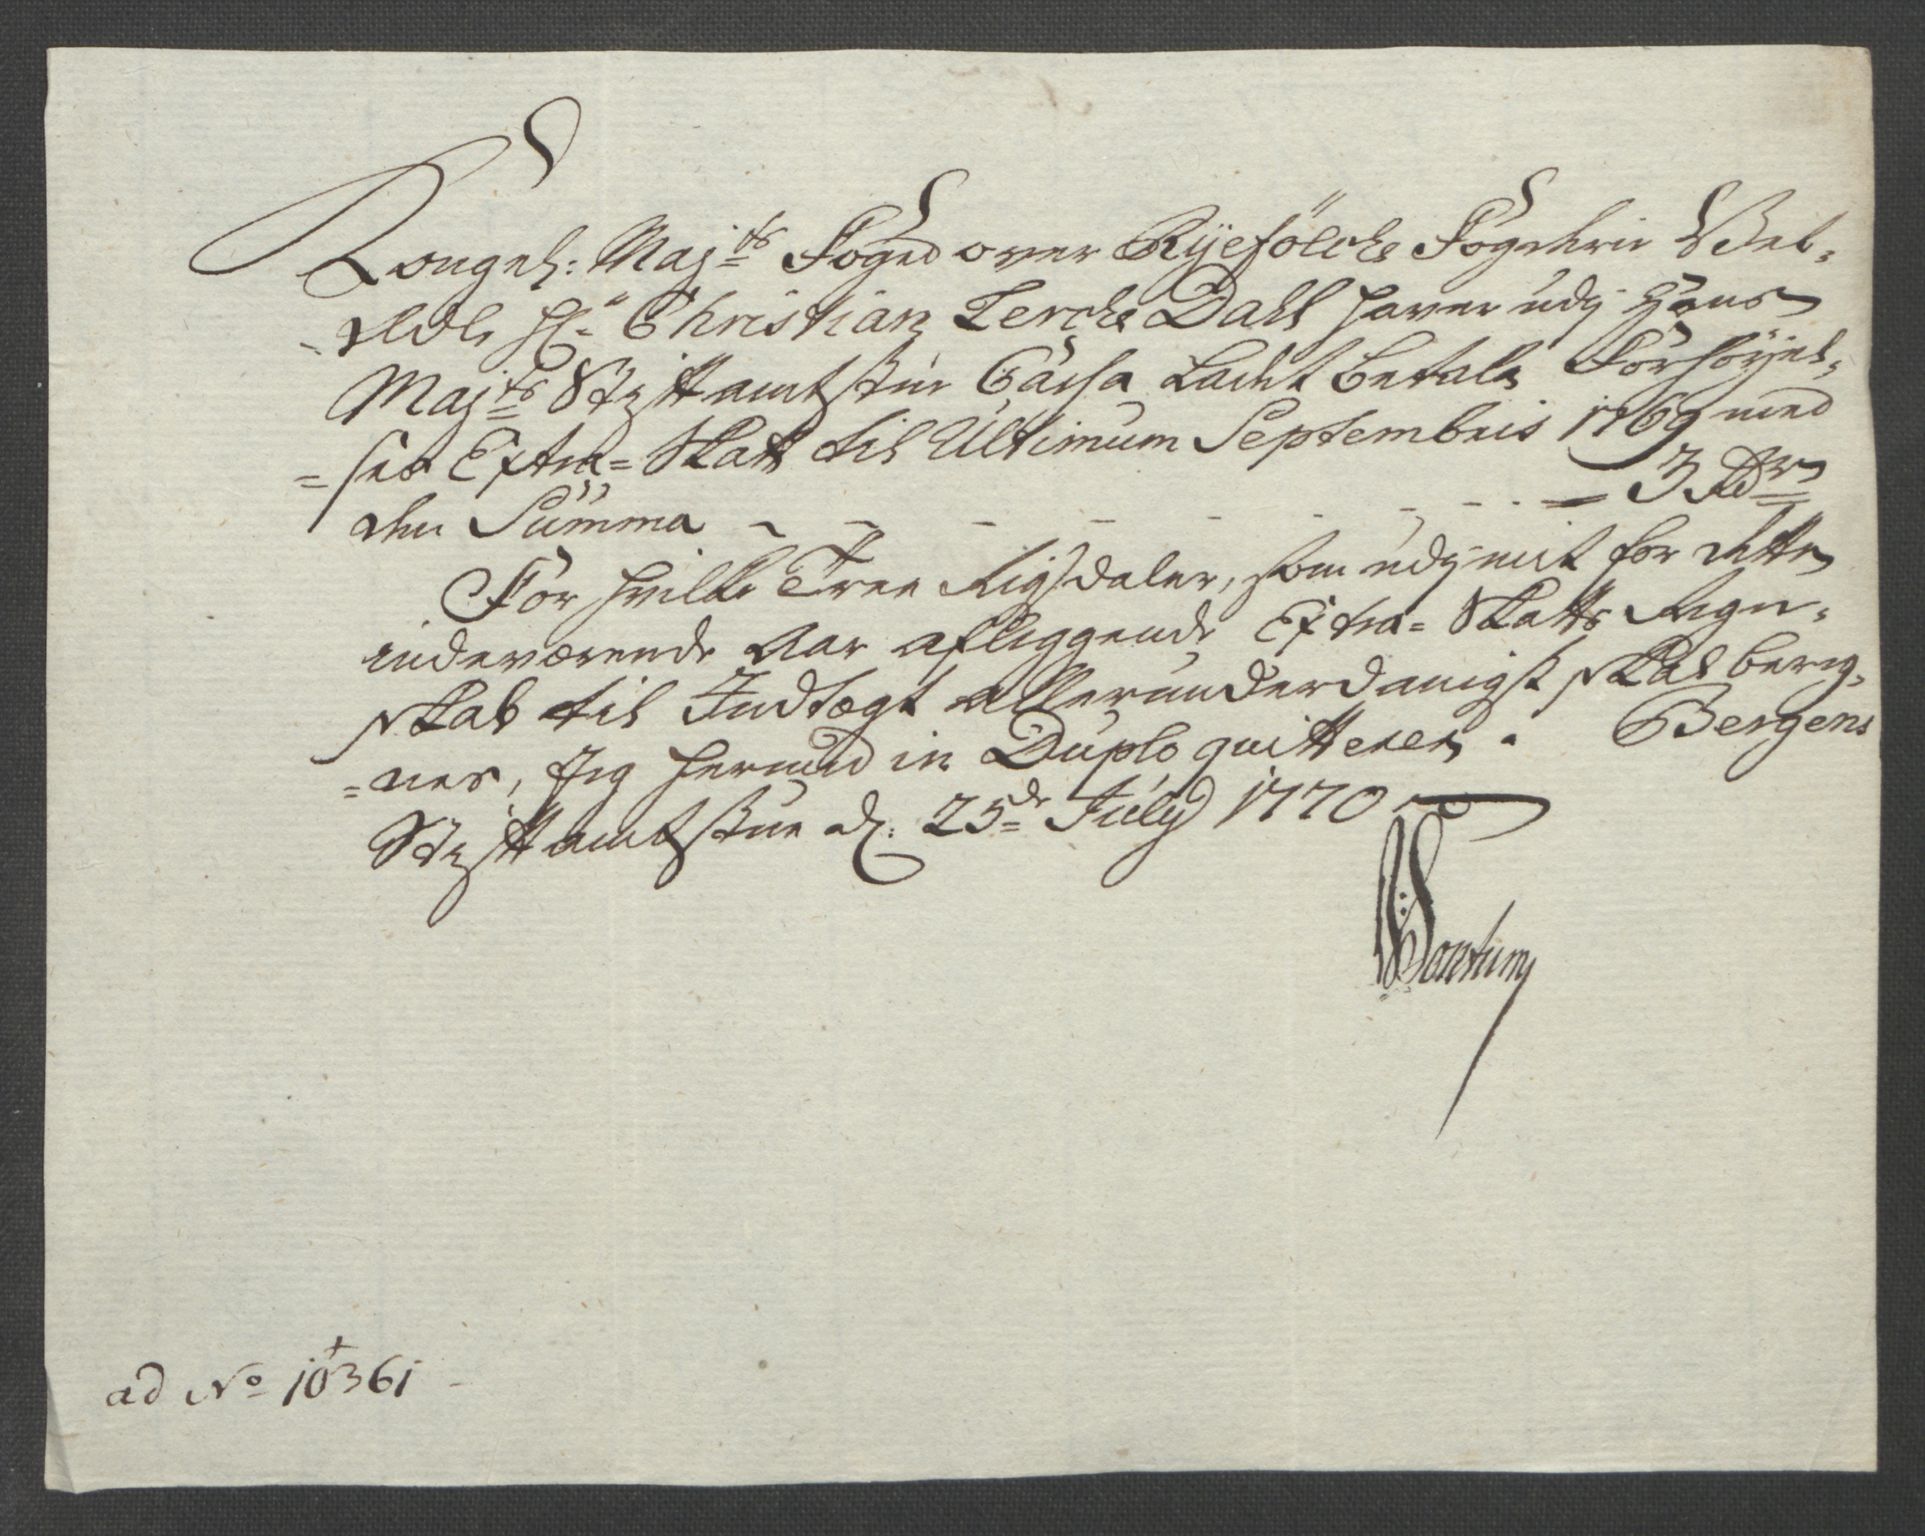 Kongel: Maj:ts Foged over Ryefölcke Fogderie Vel-
-Edle Hr: Christian Lercke Dall haver udj Hans
Maj:ts Stiftamtstue Cassa Ladet betale Forhöyel-
=ses Extra=Skatt til Ultimum Septembris 1769 med
den Summa - - - - - - - = 3 Rdr
For hvilke Tree Rigsdaler, som udj mit for dette
indeværende Aar aflæggende Extra=Skatts Regn-
skab til Indtægt allerunderdanigst skal bereg-
=nes, Jeg hermed in Duplo quitterer. Bergens
Stiftamtstue d: 25de July 1770
ad No 10361